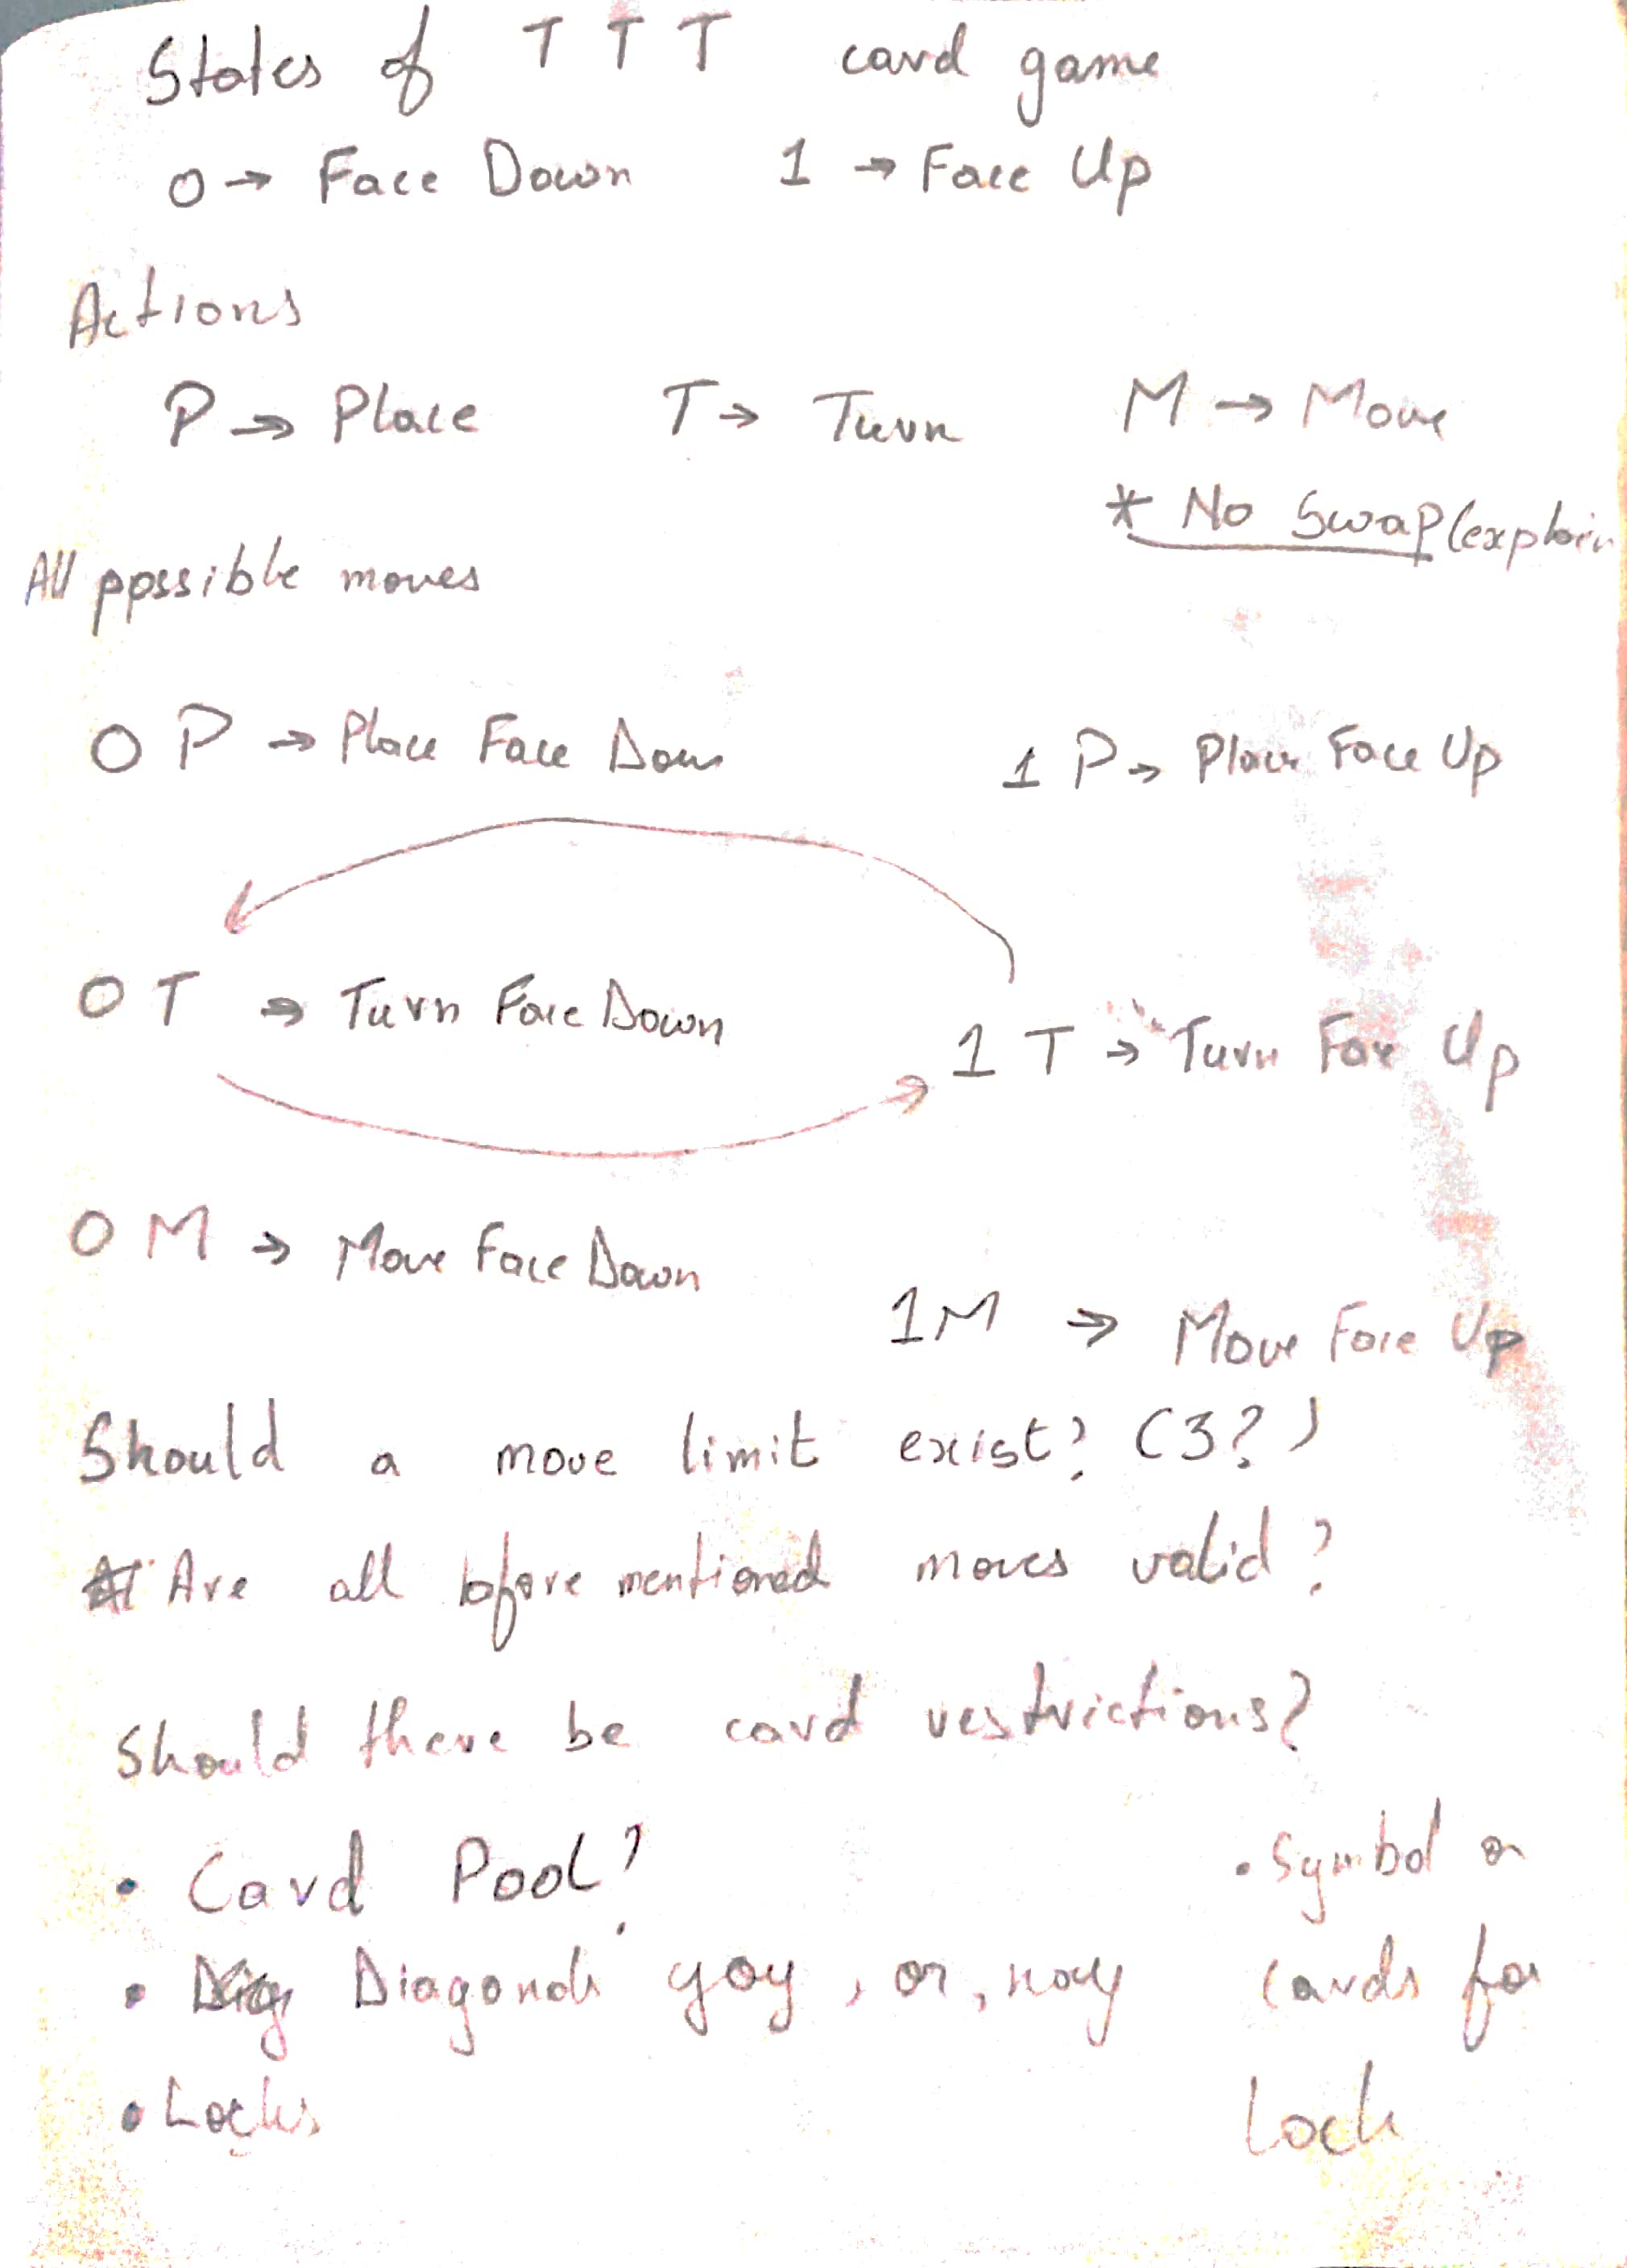 States of T T T card game
0 → Face Down 1 → Face Up
Actions
P → Place T → Turn M → Move
* No Swap (explain
All possible moves
0 P → Place Face Down 1 P → Place Face Up
0 T → Turn Face Down
1 T → Turn Face Up
0 M → Move Face Down
1M → Move Face Up
Should a move limit exist? (3?)
Are all before mentioned moves valid?
Should there be card restrictions?
• Card Pool?
• Diagonals yay, or, nay
• Locks
• Symbol on
cards for
Lock